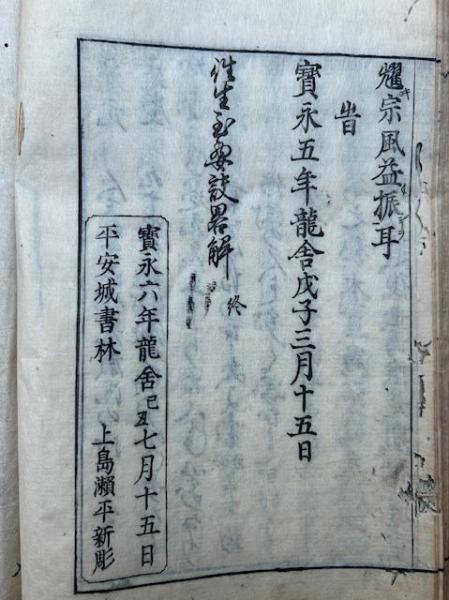 耀宗風益振耳
旹
寶永五年龍舎戊子三月十五日
徃生至要訣畧解 終
寶永六年龍舎己丑七月十五日
平安城書林 上島瀬平新彫